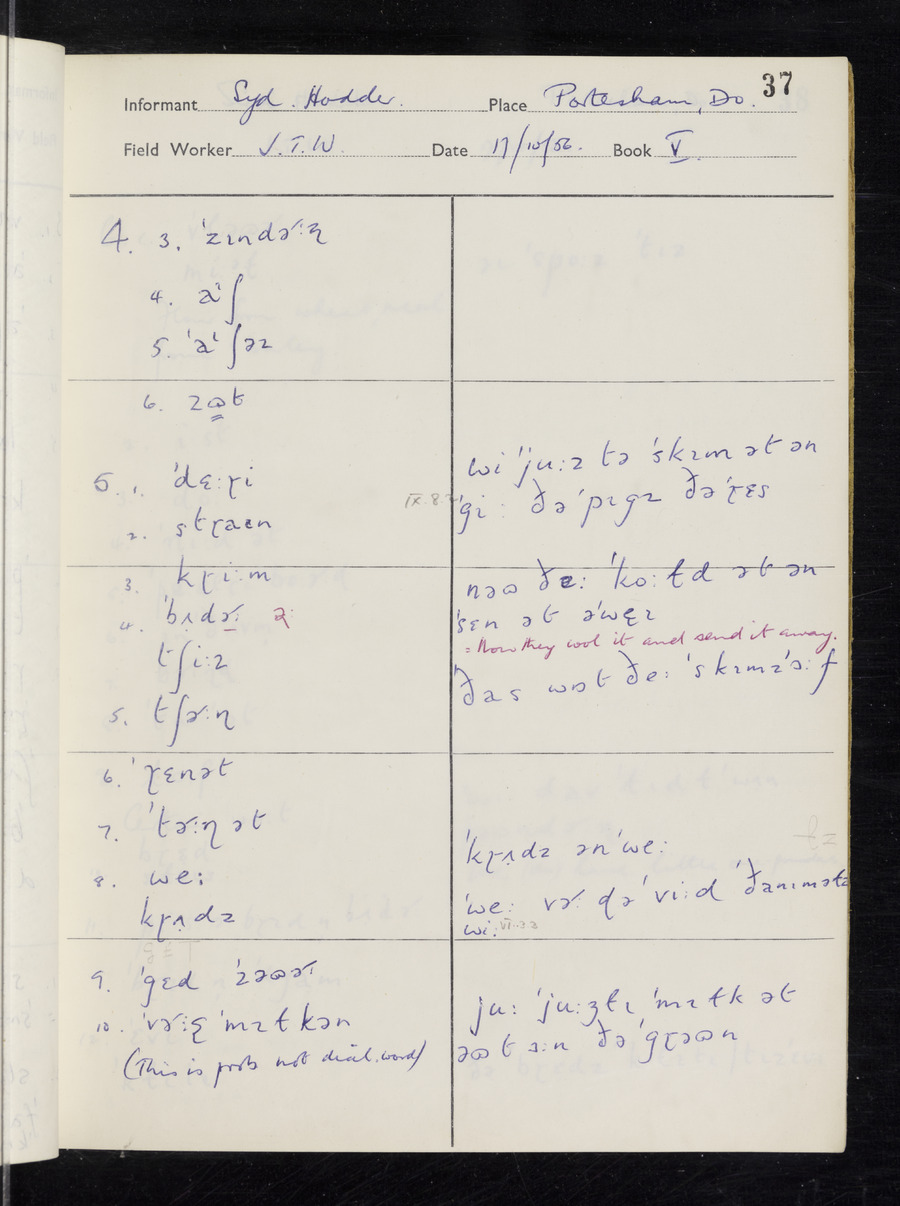 37
Informant Syd. Hodder. Place Portesham, Do.
Field Worker J.T.W. Date 17/10/56. Book V.
4. 3. ˈzɪndɚːɳ
4. aˈʃ
5. ˈaˈʃəz
6. zɷt
5. 1. ˈdɛːɽi
2. stɽaɪn
3. kɽiːm
4. ˈbʌdɚː ə:
tʃiːz
5. tʃɚːɳ
6. ˈɽɛnət
7. ˈtɚːɳət
8. weː
kɽʌdz
9. ˈgɛd ˈzəɷɚ
10. ˈvɚːɪ ˈmɪɫkən
(This is prob not dial. word)
wi ˈjuːz tə ˈskɪm ət ən
IX.8.2 ˈgiː ðə ˈpɪgz ðə ˈɽɛs
nəɷ ðeː ˈkoːɫd ət ən
ˈsɛn ət əˈwɛɪ
= Now they cool it and send it away.
ðas wɒt ðeː ˈskɪmzˈɔːf
ˈkɽʌdz ən ˈweː
ˈweː vɚ ɖə ˈviːd ˈðanɪməɫz
wi: VI.3.2
juː ˈjuːʒɫɪ ˈmɪɫk ət
əɷt ɔːn ðə ˈgɽəɷn